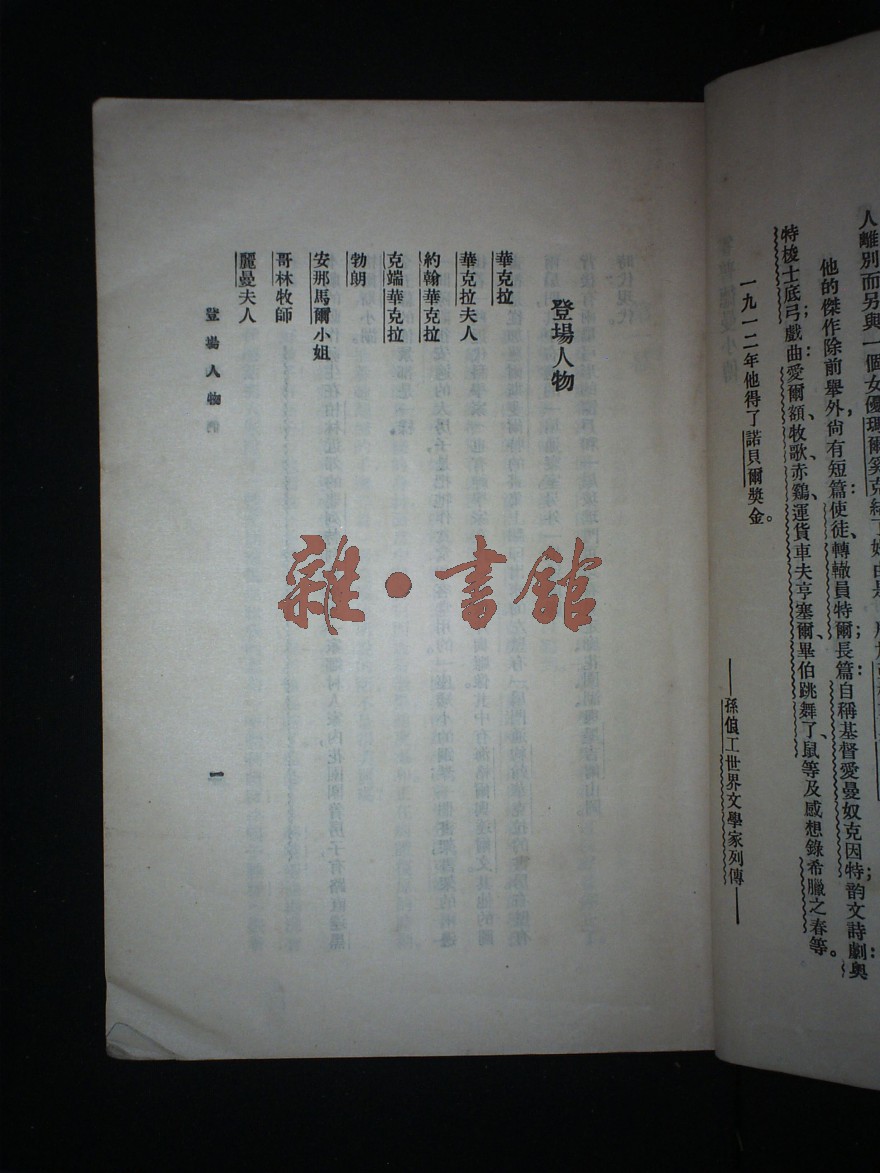 人離別而另與一個女優瑪爾
他的傑作除前舉外,尙有短篇:使徒、轉轍員特爾;長篇:自稱基督愛曼奴克因特;韵文詩劇:奧
特梭士底弓;戲曲:愛爾額牧歌、赤鷄、運貨車夫亨塞爾、畢伯跳舞了、鼠等及感想錄希臘之春等。
一九一二年他得了諾貝爾獎金。
——孫俍工世界文學家列傳——
登場人物
華克拉
華克拉夫人
約翰華克拉
克端華克拉
勃朗
安那馬爾小姐
哥林牧師
麗曼夫人
登場人物
一
雜·書館